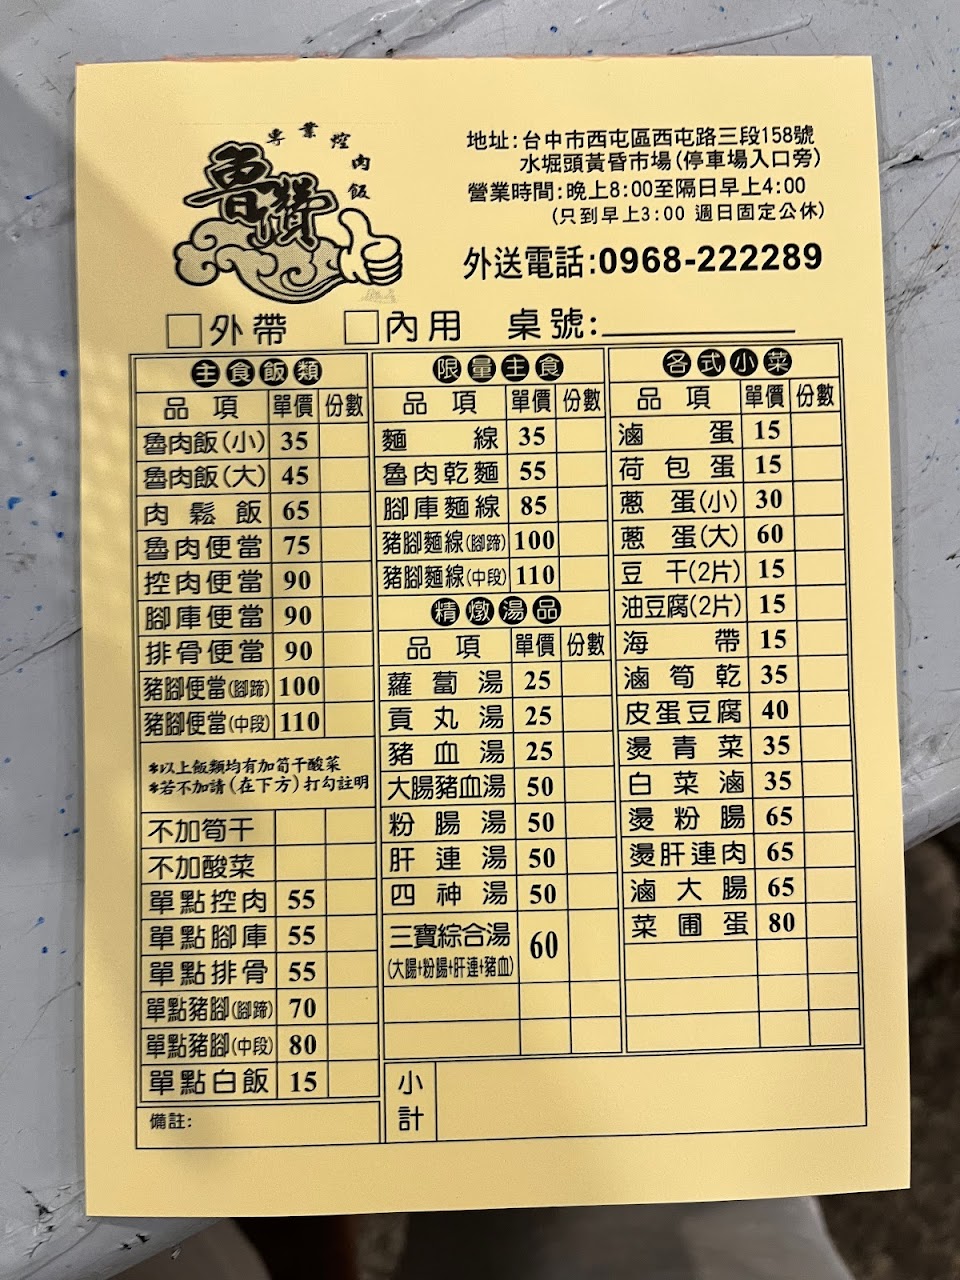 專業控肉飯
魯讚
地址:台中市西屯區西屯路三段158號
水堀頭黃昏市場(停車場入口旁)
營業時間:晚上8:00至隔日早上4:00
(只到早上3:00 週日固定公休)
外送電話:0968-222289
□外帶 □內用 桌號:
主食飯類
品項 單價 份數
魯肉飯(小) 35
魯肉飯(大) 45
肉鬆飯 65
魯肉便當 75
控肉便當 90
腳庫便當 90
排骨便當 90
豬腳便當(腳蹄) 100
豬腳便當(中段) 110
*以上飯類均有加筍干酸菜
*若不加請(在下方)打勾註明
不加筍干
不加酸菜
單點控肉 55
單點腳庫 55
單點排骨 55
單點豬腳(腳蹄) 70
單點豬腳(中段) 80
單點白飯 15
備註:
限量主食
品項 單價 份數
麵線 35
魯肉乾麵 55
腳庫麵線 85
豬腳麵線(腳蹄) 100
豬腳麵線(中段) 110
精燉湯品
品項 單價 份數
蘿蔔湯 25
貢丸湯 25
豬血湯 25
大腸豬血湯 50
粉腸湯 50
肝連湯 50
四神湯 50
三寶綜合湯 60
(大腸+粉腸+肝連+豬血)
各式小菜
品項 單價 份數
滷蛋 15
荷包蛋 15
蔥蛋(小) 30
蔥蛋(大) 60
豆干(2片) 15
油豆腐(2片) 15
海帶 15
滷筍乾 35
皮蛋豆腐 40
燙青菜 35
白菜滷 35
燙粉腸 65
燙肝連肉 65
滷大腸 65
菜圃蛋 80
小計